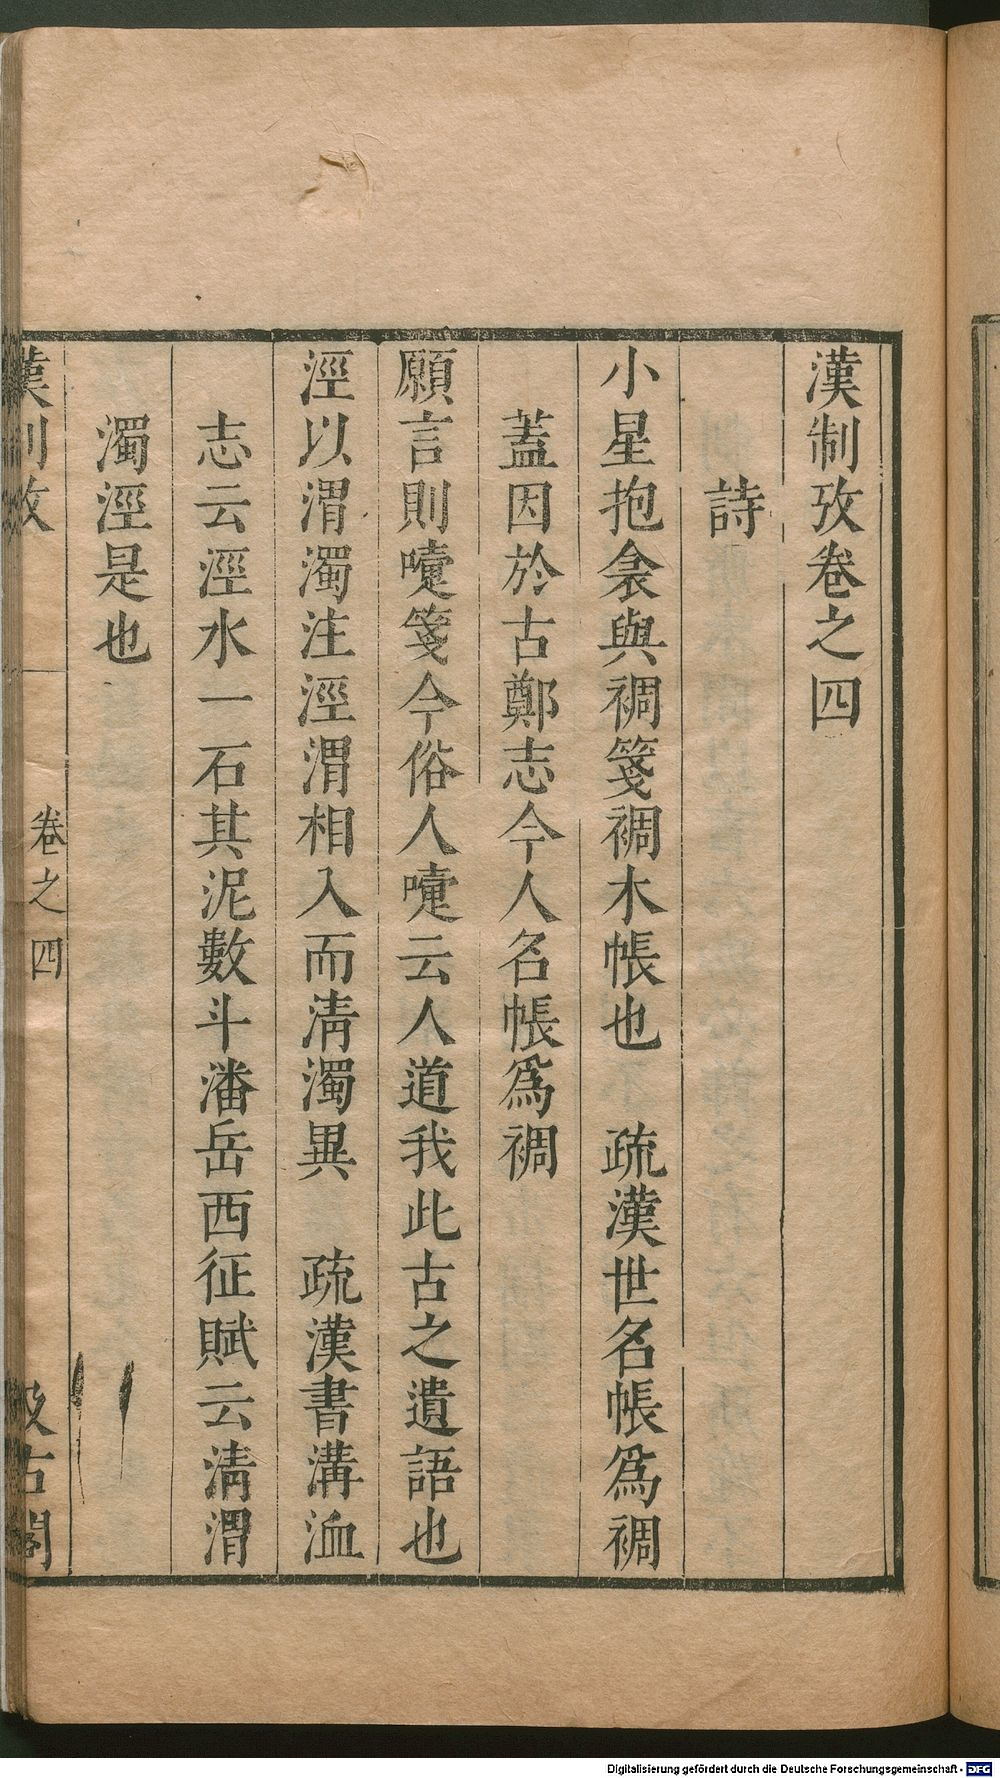 漢制攷卷之四
詩
小星抱衾與裯箋裯木帳也　疏漢世名帳爲裯
蓋因於古鄭志今人名帳爲裯
願言則嚏箋今俗人嚏云人道我此古之遺語也
涇以渭濁注涇渭相入而淸濁異　疏漢書溝洫
志云涇水一石其泥數斗潘岳西征賦云淸渭
濁涇是也
漢制攷
卷之四
汲古閣
Digitalisierung gefördert durch die Deutsche Forschungsgemeinschaft - DFG